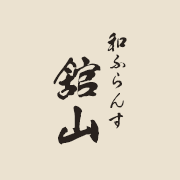 和ふらんす
舘山